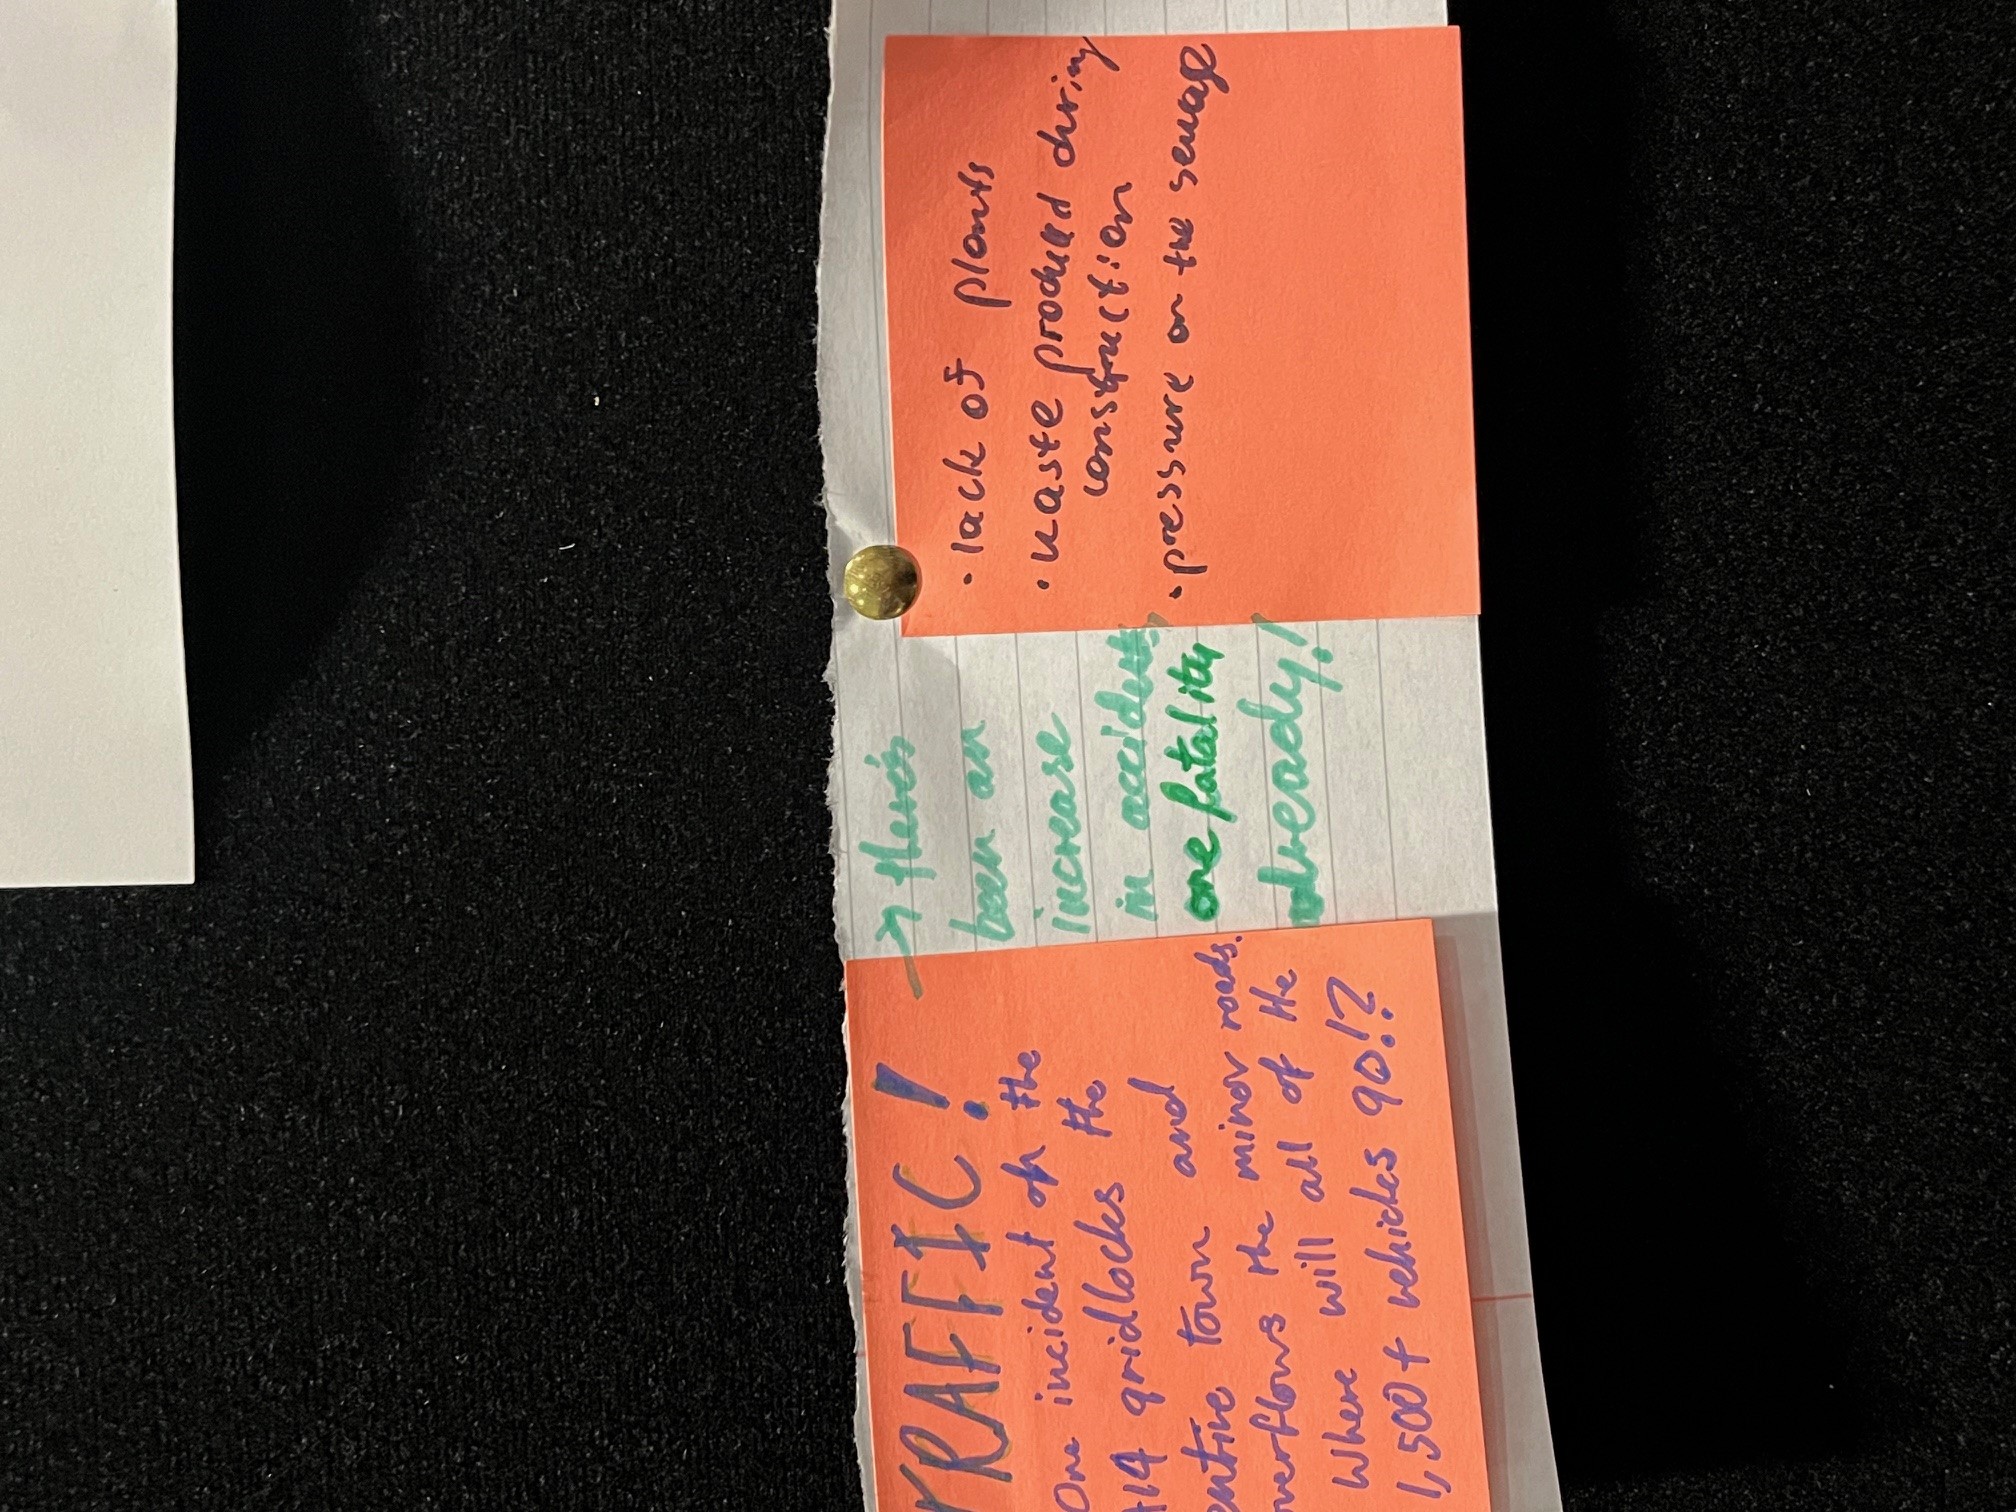 TRAFFIC!
One incident on the
A14 gridlocks the
entire town and
overflows the minor roads.
Where will all of the
1,500+ vehicles go!?
→ there's
been an
increase
in accidents
one fatality
already!
· lack of plants
· waste produced during
construction
· pressure on the sewage